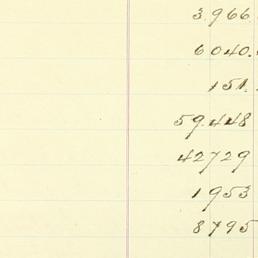 3.966
6040.
151.
59.448
42729
1953
8795